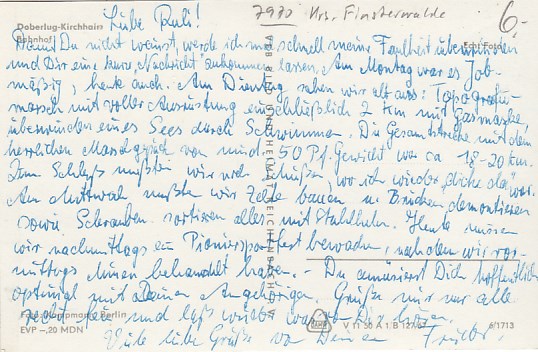 Liebe Ruli!
7980 Krs. Finsterwalde
6,-
Doberlug-Kirchhain
Bahnhof
Echt Foto
Damit Du nicht weinst, werde ich mal schnell meine Faulheit überwinden
und Dir eine kurze Nachricht zukommen lassen. Am Montag war es Job-
mäßig, heute auch. Am Dienstag sahen wir alt aus: Topografie-
marsch mit voller Ausrüstung einschließlich 2 km mit Gasmaske,
überwinden eines Sees durch Schwimmen. Die Gesamtstrecke mit dem
herrlichen Marschgepäck von mind. 50 Pf. Gewicht war ca 18-20 km.
Zum Schluß mußten wir noch schießen, wo ich wieder "dicke da" war.
Am Mittwoch mußten wir Zelte bauen u. Brücken demontieren
sowie Schrauben sortieren alles mit Stahlhelm. Heute müssen
wir nachmittags ein Pioniersportfest bewachen, nachdem wir vor-
mittags Minen behandelt haben. - Du amüsierst Dich hoffentlich
optimal mit Deinen Angehörigen. Grüße mir nur alle
recht und laß was von Dir hören.
Viele liebe Grüße von Deinem
VEB BILD UND HEIMAT REICHENBACH I. V.
Berlin
EVP -,20 MDN
V 11 50 A 1 B
6/1713